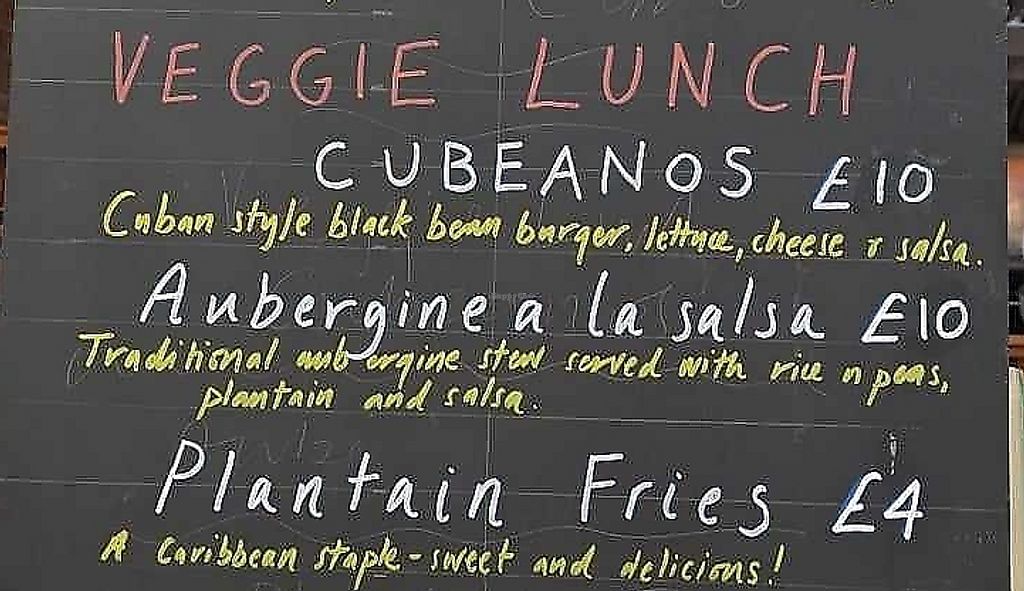 VEGGIE LUNCH
CUBEANOS £10
Cuban style black bean burger, lettuce, cheese & salsa.
Aubergine a la salsa £10
Traditional aubergine stew served with rice n peas,
plantain and salsa.
Plantain Fries £4
A Caribbean staple - sweet and delicious!